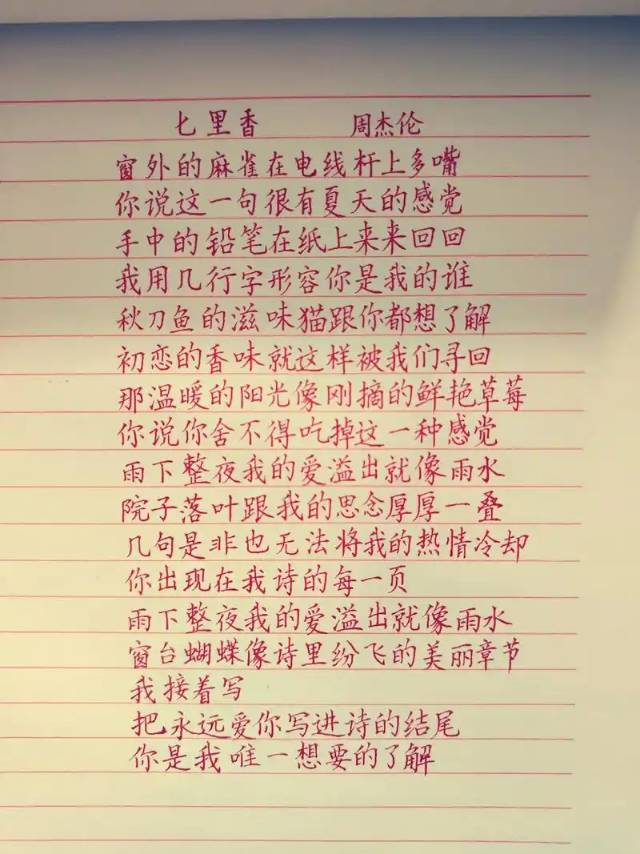 七里香 周杰伦
窗外的麻雀在电线杆上多嘴
你说这一句很有夏天的感觉
手中的铅笔在纸上来来回回
我用几行字形容你是我的谁
秋刀鱼的滋味猫跟你都想了解
初恋的香味就这样被我们寻回
那温暖的阳光像刚摘的鲜艳草莓
你说你舍不得吃掉这一种感觉
雨下整夜我的爱溢出就像雨水
院子落叶跟我的思念厚厚一叠
几句是非也无法将我的热情冷却
你出现在我诗的每一页
雨下整夜我的爱溢出就像雨水
窗台蝴蝶像诗里纷飞的美丽章节
我接着写
把永远爱你写进诗的结尾
你是我唯一想要的了解